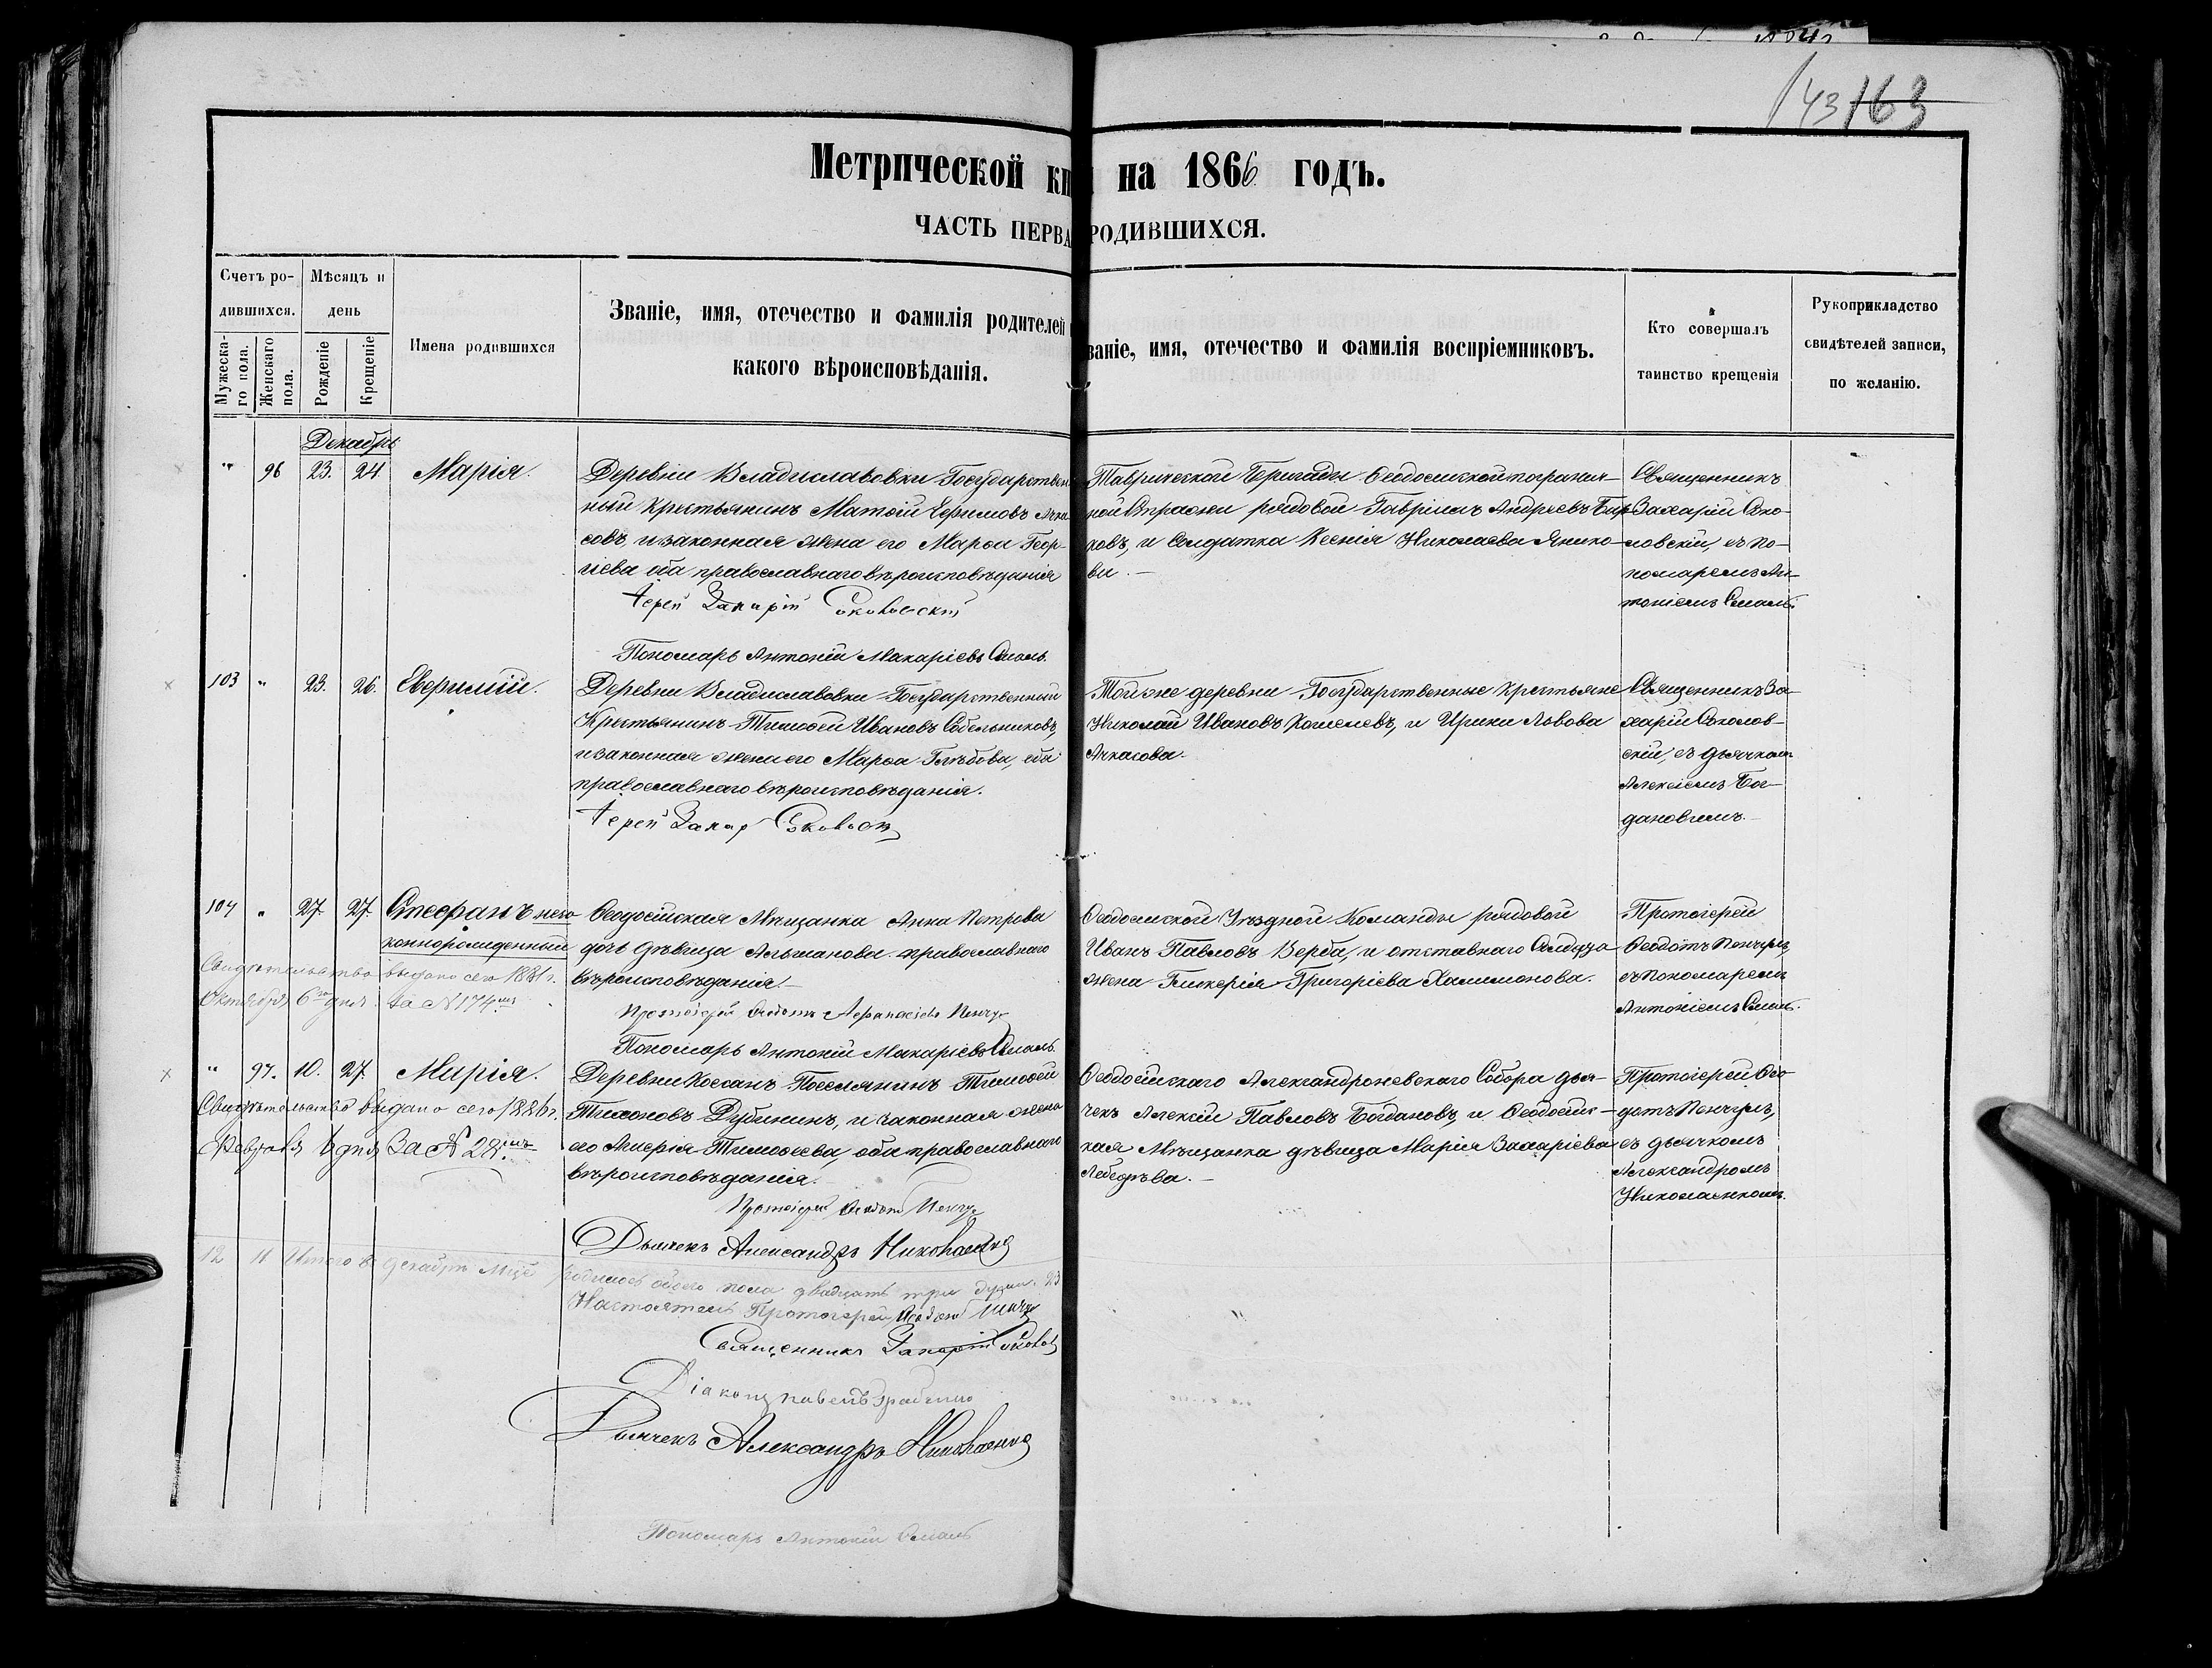 143 163
Метрической кн на 1866 годъ.
ЧАСТЬ ПЕРВА РОДИВШИХСЯ.
Счетъ родившихся.
Мужеска-го пола.
Женскаго пола.
Мѣсяцъ и день
Рожденіе
Крещеніе
Имена родившихся
Званіе, имя, отчество и фамилія родителей
какого вѣроисповѣданія.
ваніе, имя, отечество и фамилія воспріемниковъ.
Кто совершалъ
таинство крещенія
Рукоприкладство
свидѣтелей записи,
по желанію.
Декабрь
" 96 23. 24. Марія.
Деревни Владиславовки Государствен
ный Крестьянинъ Матѳій Ефимовъ Ачка
совъ, и законная жена его Марѳа Геор-
гіева оба православнаго вѣроисповѣданія
Іерей Захарій Соколовскій
Пономарь Антоній Макаріевъ Смаль.
Таврической Бригады Ѳеодосійской погранич-
ной Стражи рядовой Гавріилъ Андреевъ Бир
ковъ, и Солдатка Ксенія Николаева Янико-
ва. –
Священникъ
Захарій Соко-
ловскій, съ по-
номаремъ Ан-
тоніемъ Смаль.
103 " 23. 26. Евѳимій.
Деревни Владиславовки Государственный
Крестьянинъ Тимоѳей Ивановъ Собельниковъ,
и законная жена его Марѳа Глѣбова, оба
православнаго вѣроисповѣданія.
Іерей Захар Соколовск
Той же деревни Государственные крестьяне
Николай Ивановъ Кошелевъ, и Ирина Львова
Ачкасова.
Священникъ За-
харій Соколов-
скій, съ дьячкомъ
Алексіемъ Бог-
дановымъ.
104 " 27. 27. Стефанъ неза-
коннорожденный
Свидѣтельство выдано сего 1881 г.
Октября 6го дня. за № 174мъ
Ѳеодосійская Мѣщанка Анна Петрова
дочь дѣвица Альтанова православнаго
вѣроисповѣданія. –
Протоіерей Ѳеодотъ Аѳанасіевъ
Пономарь Антоній Макаріевъ Смаль.
Ѳеодосійской Уѣздной Команды рядовой
Иванъ Павловъ Верба, и отставнаго Солдата
жена Гликерія Григоріева Халимонова.
Протоіерей
Ѳеодотъ
съ пономаремъ
Антоніемъ Смаль.
" 97. 10. 27. Марія.
Свидѣтельство выдано сего 1886 г.
Февраля 6 дня За № 28.мъ
Деревни Коссанъ Поселянинъ Тимоѳей
Тихоновъ Дубининъ, и законная жена
его Тимоѳеева, оба православнаго
вѣроисповѣданія.
Протоіерей Ѳеодотъ
Дьячекъ Александръ Николаенко
Ѳеодосійскаго Александроневскаго Собора дья-
чекъ Алексій Павловъ Богдановъ, и Ѳеодосій-
кая Мѣщанка дѣвица Марія Захаріева
Лебедѣва. –
Протоіерей Ѳео
дотъ
съ дьячкомъ
Александромъ
Николаенкомъ.
12 11 Итого въ декабрѣ Мцѣ родилось обоего пола двадцать три души. 23
Настоятель Протоіерей Ѳеодотъ
Священникъ Захарій Соколов
Діаконъ Павелъ
Дьячекъ Александръ Николаенко
Пономарь Антоній Смаль